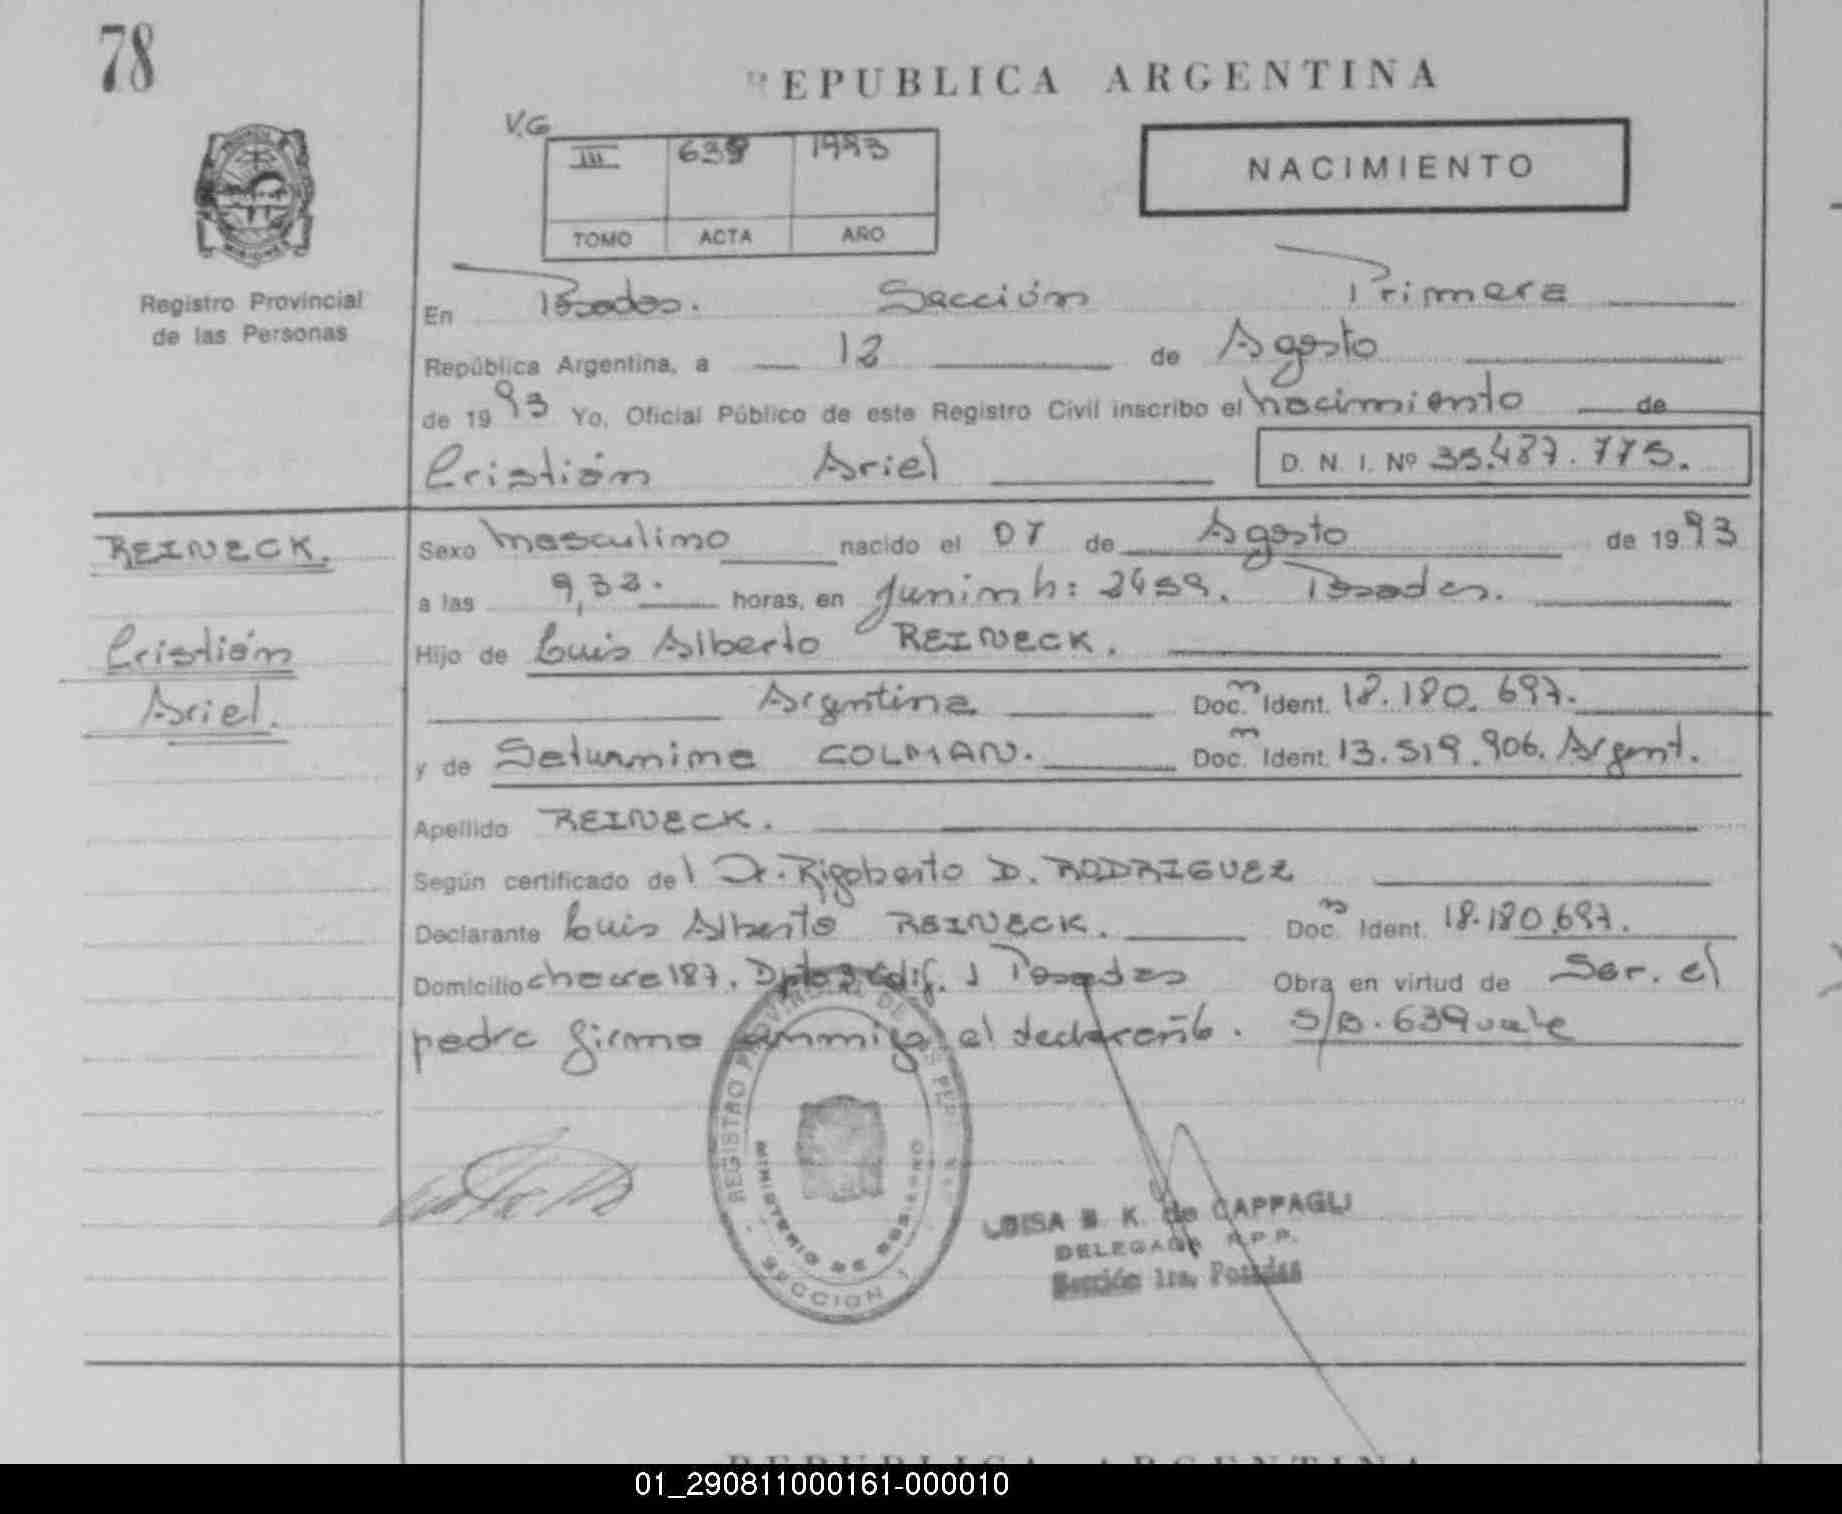 78
REPUBLICA ARGENTINA
V.G
III 639 1993
TOMO ACTA AÑO
NACIMIENTO
Registro Provincial
de las Personas
En Posadas. Sección Primera
República Argentina, a 12 de Agosto
de 1993 Yo, Oficial Público de este Registro Civil inscribo el nacimiento de
Cristián Ariel
D. N. I. Nº 35.487.775.
REINECK.
Cristián
Ariel.
Sexo masculino nacido el 07 de Agosto de 1993
a las 9,32. horas, en Junin n: 2459. Posadas.
Hijo de Luis Alberto REINECK.
Argentina Doc. Ident. 18.180.697.
y de Saturnina COLMAN. Doc. Ident. 13.519.906. Argent.
Apellido REINECK.
Según certificado del Dr. Rigoberto D. RODRIGUEZ
Declarante Luis Alberto REINECK. Doc. Ident. 18.180.697.
Domicilio 187. Dpto 3 edif. 1 Posadas Obra en virtud de Ser. el
padre firma conmigo el declarante. S/B. 639 vale
REGISTRO PROVINCIAL DE LAS PER
MINISTERIO DE GOBIERNO
SECCION 1
LUISA B. K. de CAPPAGLI
DELEGADA R.P.P.
Sección 1ra. Posadas
REPUBLICA ARGENTINA
01_290811000161-000010